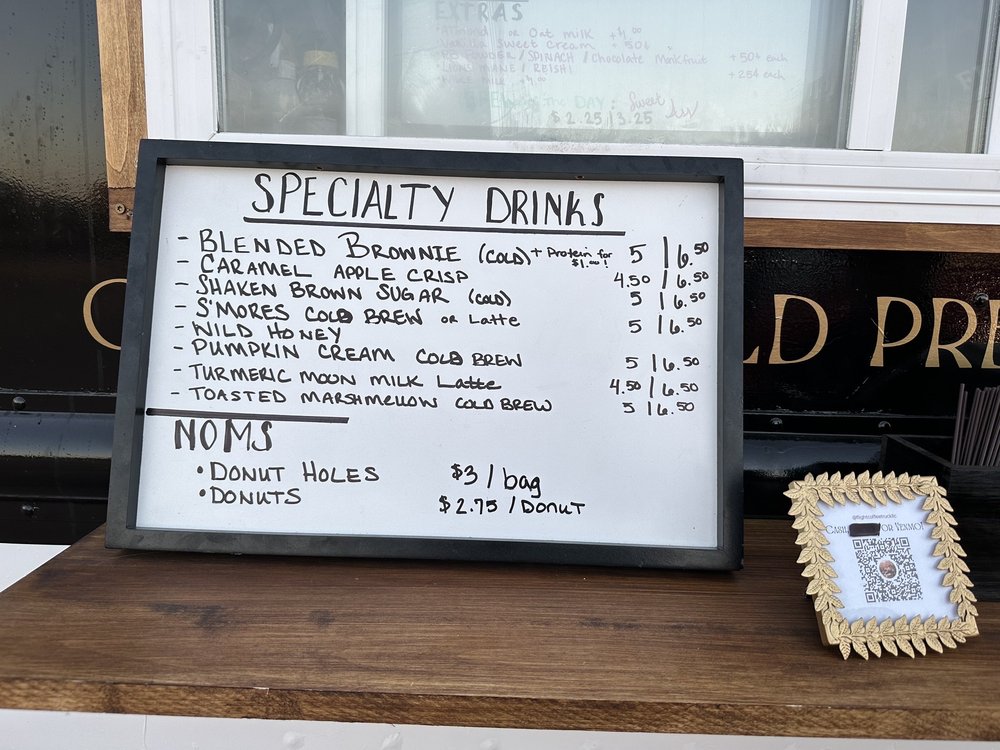 EXTRAS
Almond or Oat milk +$1.00
Vanilla Sweet Cream +50¢
POWDER / SPINACH / Chocolate Monkfruit +50¢ each
MANE / REISHI +25¢ each
THE DAY: Sweet
$2.25 | 3.25
SPECIALTY DRINKS
- BLENDED BROWNIE (COLD) + Protein for $1.00! 5 | 6.50
- CARAMEL APPLE CRISP 4.50 / 6.50
- SHAKEN BROWN SUGAR (COLD) 5 | 6.50
- S'MORES COLD BREW or Latte 5 | 6.50
- WILD HONEY
- PUMPKIN CREAM COLD BREW 5 | 6.50
- TURMERIC MOON MILK Latte 4.50 / 6.50
- TOASTED MARSHMELLOW COLD BREW 5 | 6.50
NOMS
• DONUT HOLES $3 / bag
• DONUTS $2.75 / DONUT
LD PRE
@flightcoffeetruckllc
CASH OR VENMO!